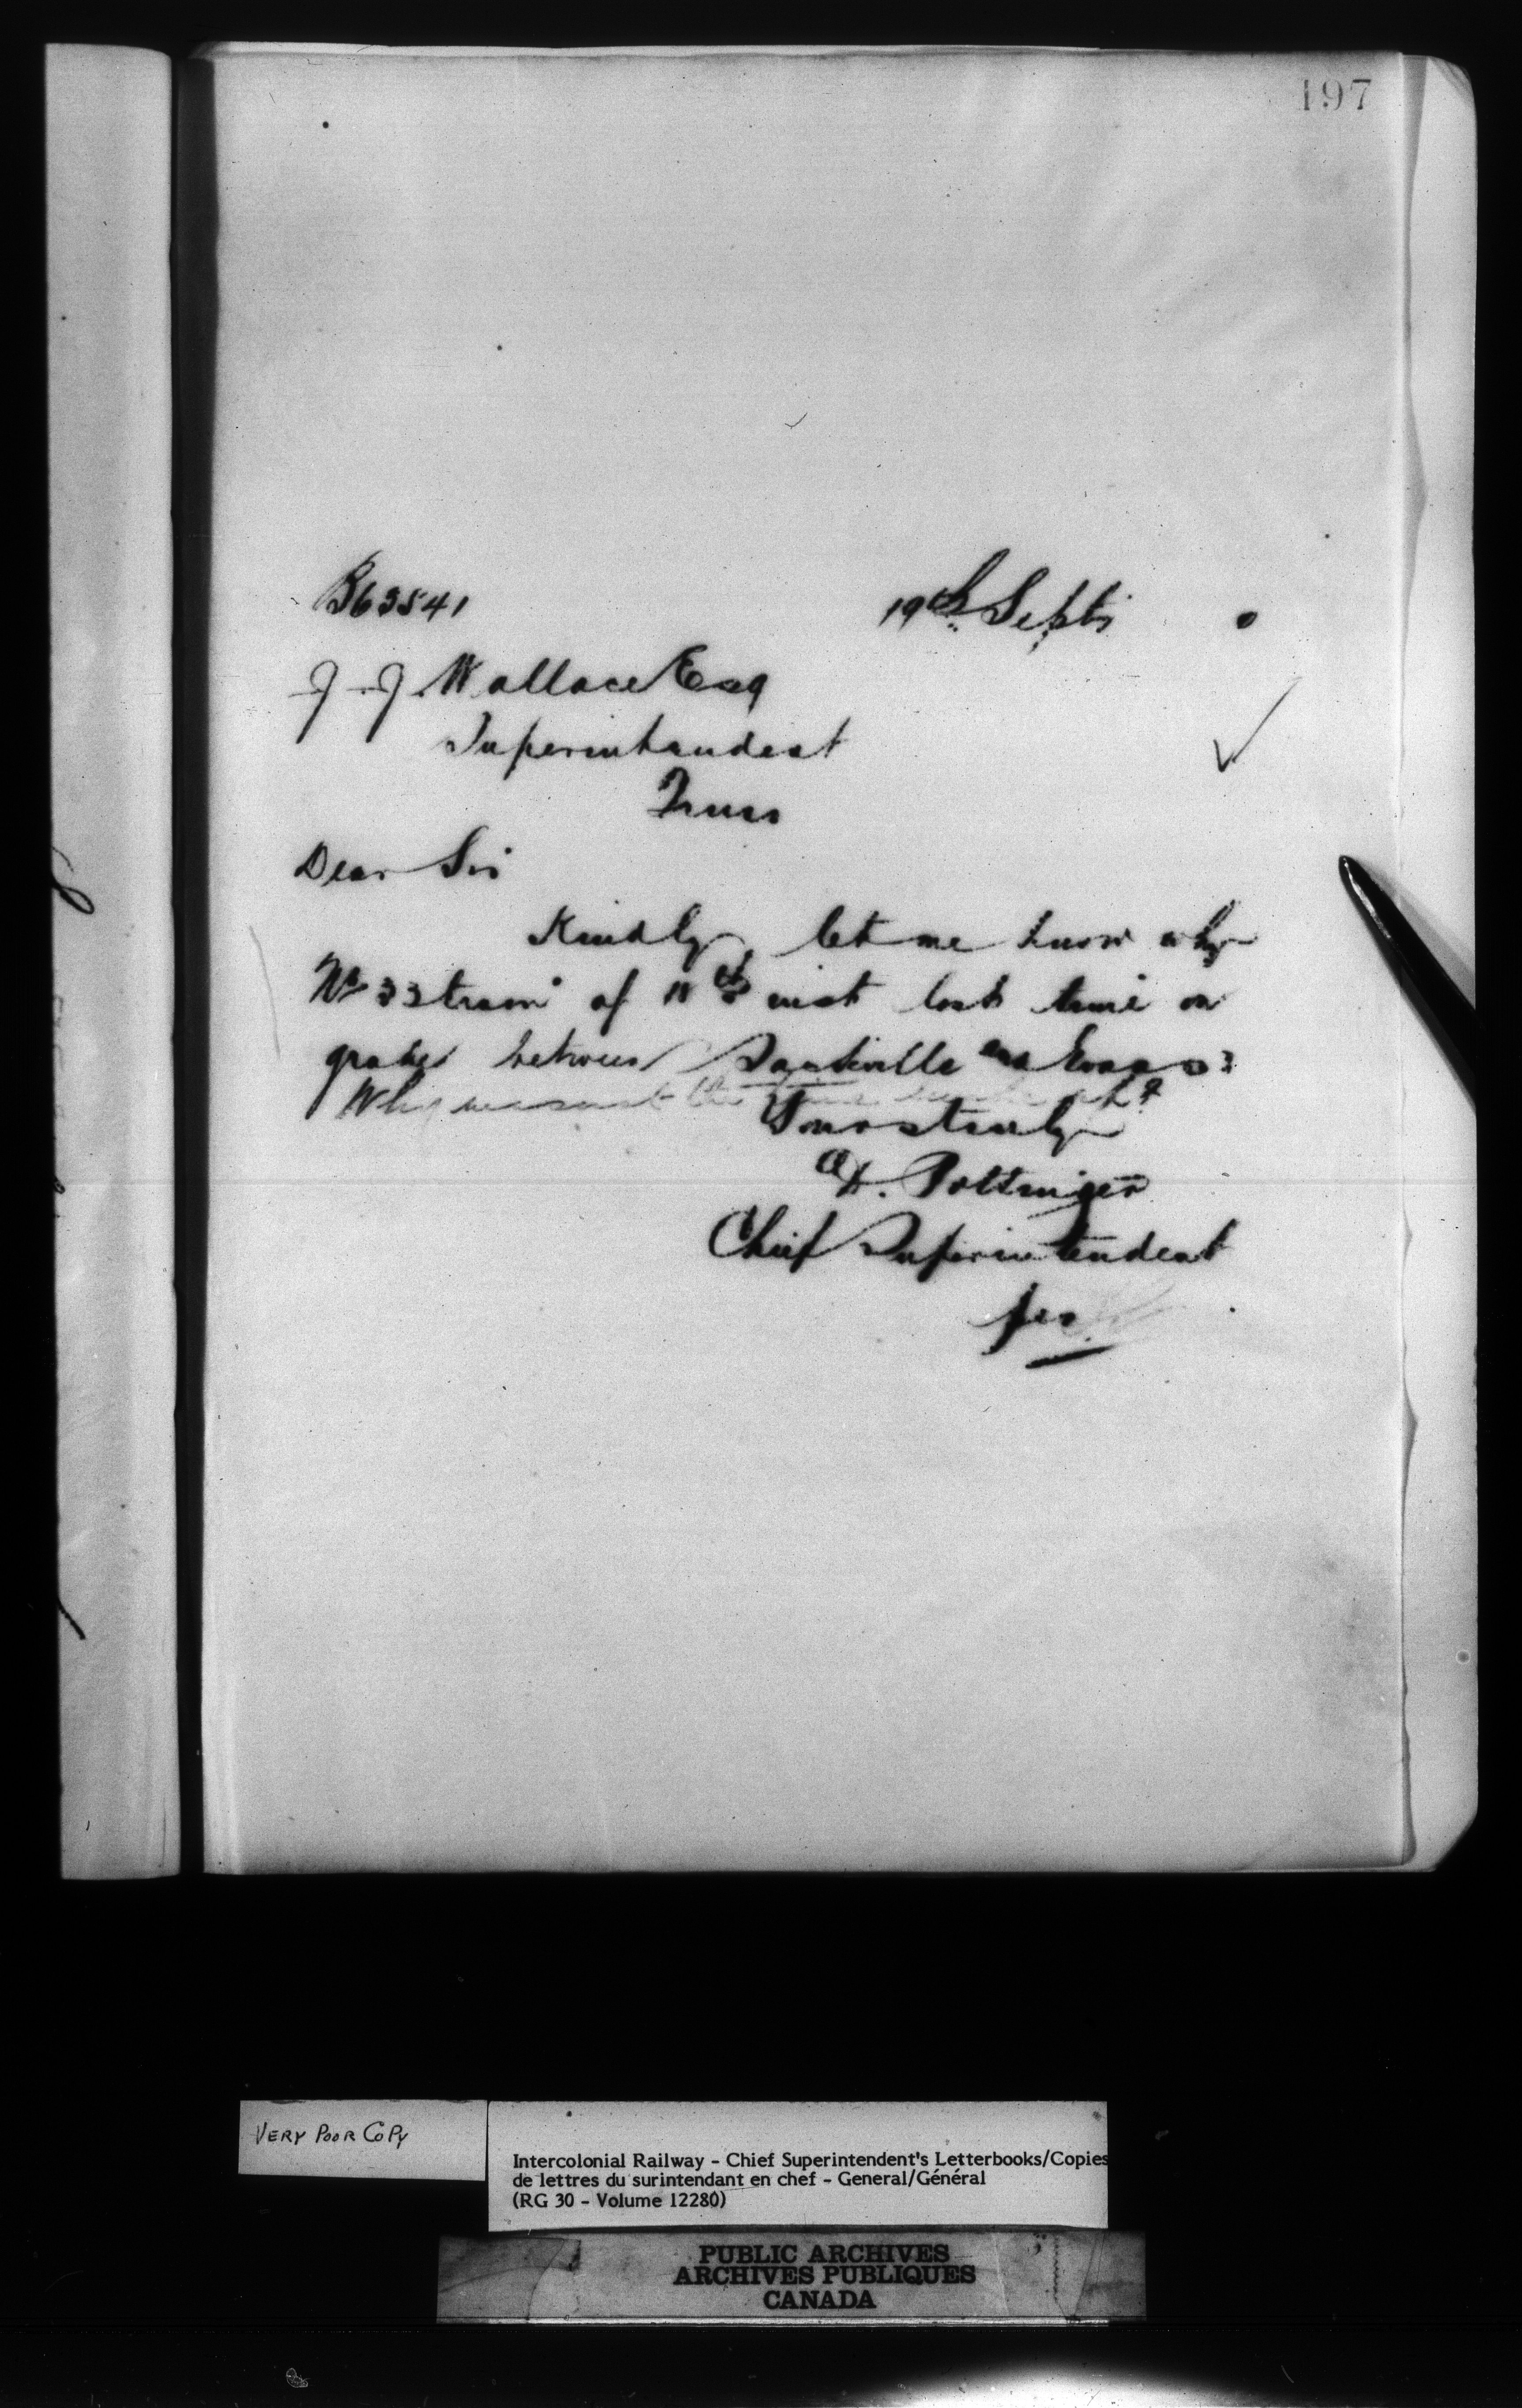 197
B63541
19th Sept.
J. J. Wallace Esq
Superintendent
Truro
Dear Sir
Kindly let me know why
No 33 train of 18th inst lost time on
grades between Sackville and Evans?
Why was not the time
Yours truly
D. Pottinger
Chief Superintendent
per
VERY POOR COPY
Intercolonial Railway - Chief Superintendent's Letterbooks/Copies
de lettres du surintendant en chef - General/Général
(RG 30 - Volume 12280)
PUBLIC ARCHIVES
ARCHIVES PUBLIQUES
CANADA